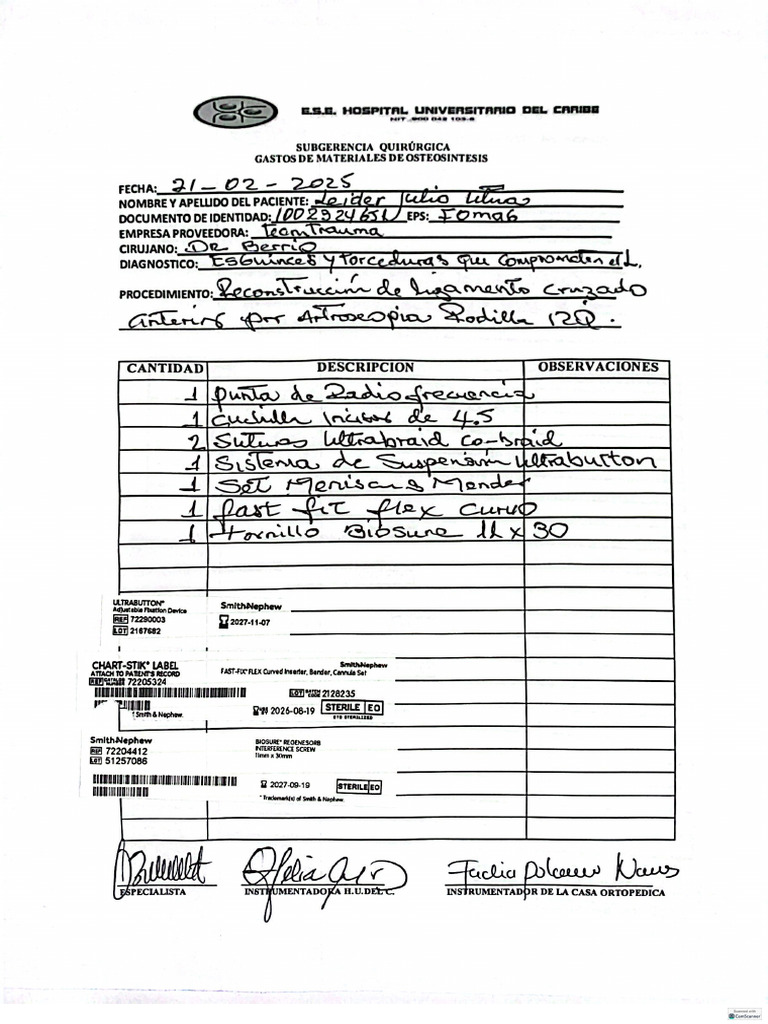 E.S.E. HOSPITAL UNIVERSITARIO DEL CARIBE
SUBGERENCIA QUIRÚRGICA
GASTOS DE MATERIALES DE OSTEOSINTESIS
FECHA: 21-02-2025
NOMBRE Y APELLIDO DEL PACIENTE: Leider Julio
DOCUMENTO DE IDENTIDAD: EPS: Fomag
EMPRESA PROVEEDORA: teamtrauma
CIRUJANO: DR Berrio
DIAGNOSTICO: Esguinces y torceduras que comprometen el L.
PROCEDIMIENTO: Reconstrucción de ligamento cruzado
anterior por Artroscopia Rodilla IZQ.
CANTIDAD DESCRIPCION OBSERVACIONES
1 punta de Radiofrecuencia
1 cuchilla incisor de 4.5
2 Suturas Ultrabraid co-braid
1 Sistema de Suspensión Ultrabutton
1 Set Meniscus Mender
1 fast fit flex curvo
1 tornillo Biosure 11 x 30
ULTRABUTTON°
Adjustable Fixation Device
REF 72290003
LOT 2167682
Smith+Nephew
2027-11-07
CHART-STIK° LABEL
ATTACH TO PATIENT'S RECORD
72205324
Smith+Nephew
FAST-FIX° FLEX Curved Inserter, Bender, Cannula Set
LOT BATCH CODE 2128235
2026-08-19 STERILE EO
Smith & Nephew.
Smith+Nephew
REF 72204412
LOT 51257086
BIOSURE° REGENESORB
INTERFERENCE SCREW
11mm x 30mm
2027-09-19 STERILE EO
° Trademark(s) of Smith & Nephew.
ESPECIALISTA INSTRUMENTADORA H.U.DEL C. INSTRUMENTADOR DE LA CASA ORTOPEDICA
CamScanner